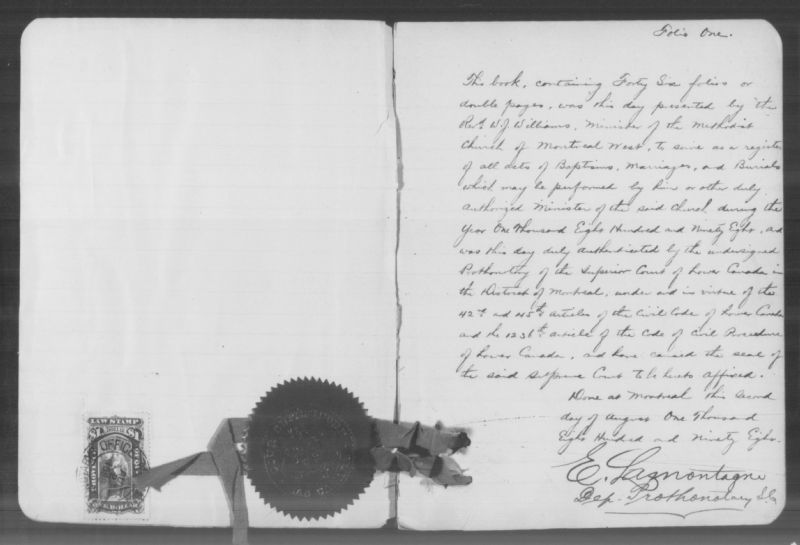 Folio One.
This book, containing Forty Six folios or
double pages, was this day presented by the
Revd. W. J. Williams, Minister of the Methodist
Church of Montreal West, to serve as a register
of all acts of Baptisms, Marriages, and Burials
which may be performed by him or other duly
authorized Minister of the said Church during the
year One Thousand Eight Hundred and Ninety Eight, and
was this day duly authenticated by the undersigned
Prothonotary of the Superior Court of Lower Canada in
the District of Montreal, under and in virtue of the
42nd and 45th articles of the Civil Code of Lower Canada
and the 1236th article of the Code of Civil Procedure
of Lower Canada, and have caused the seal of
the said Supreme Court to be hereto affixed.
Done at Montreal this Second
day of August One Thousand
Eight Hundred and Ninety Eight.
E. Lamontagne
Dep. Prothonotary S.C.
LAW STAMP
OFFICE